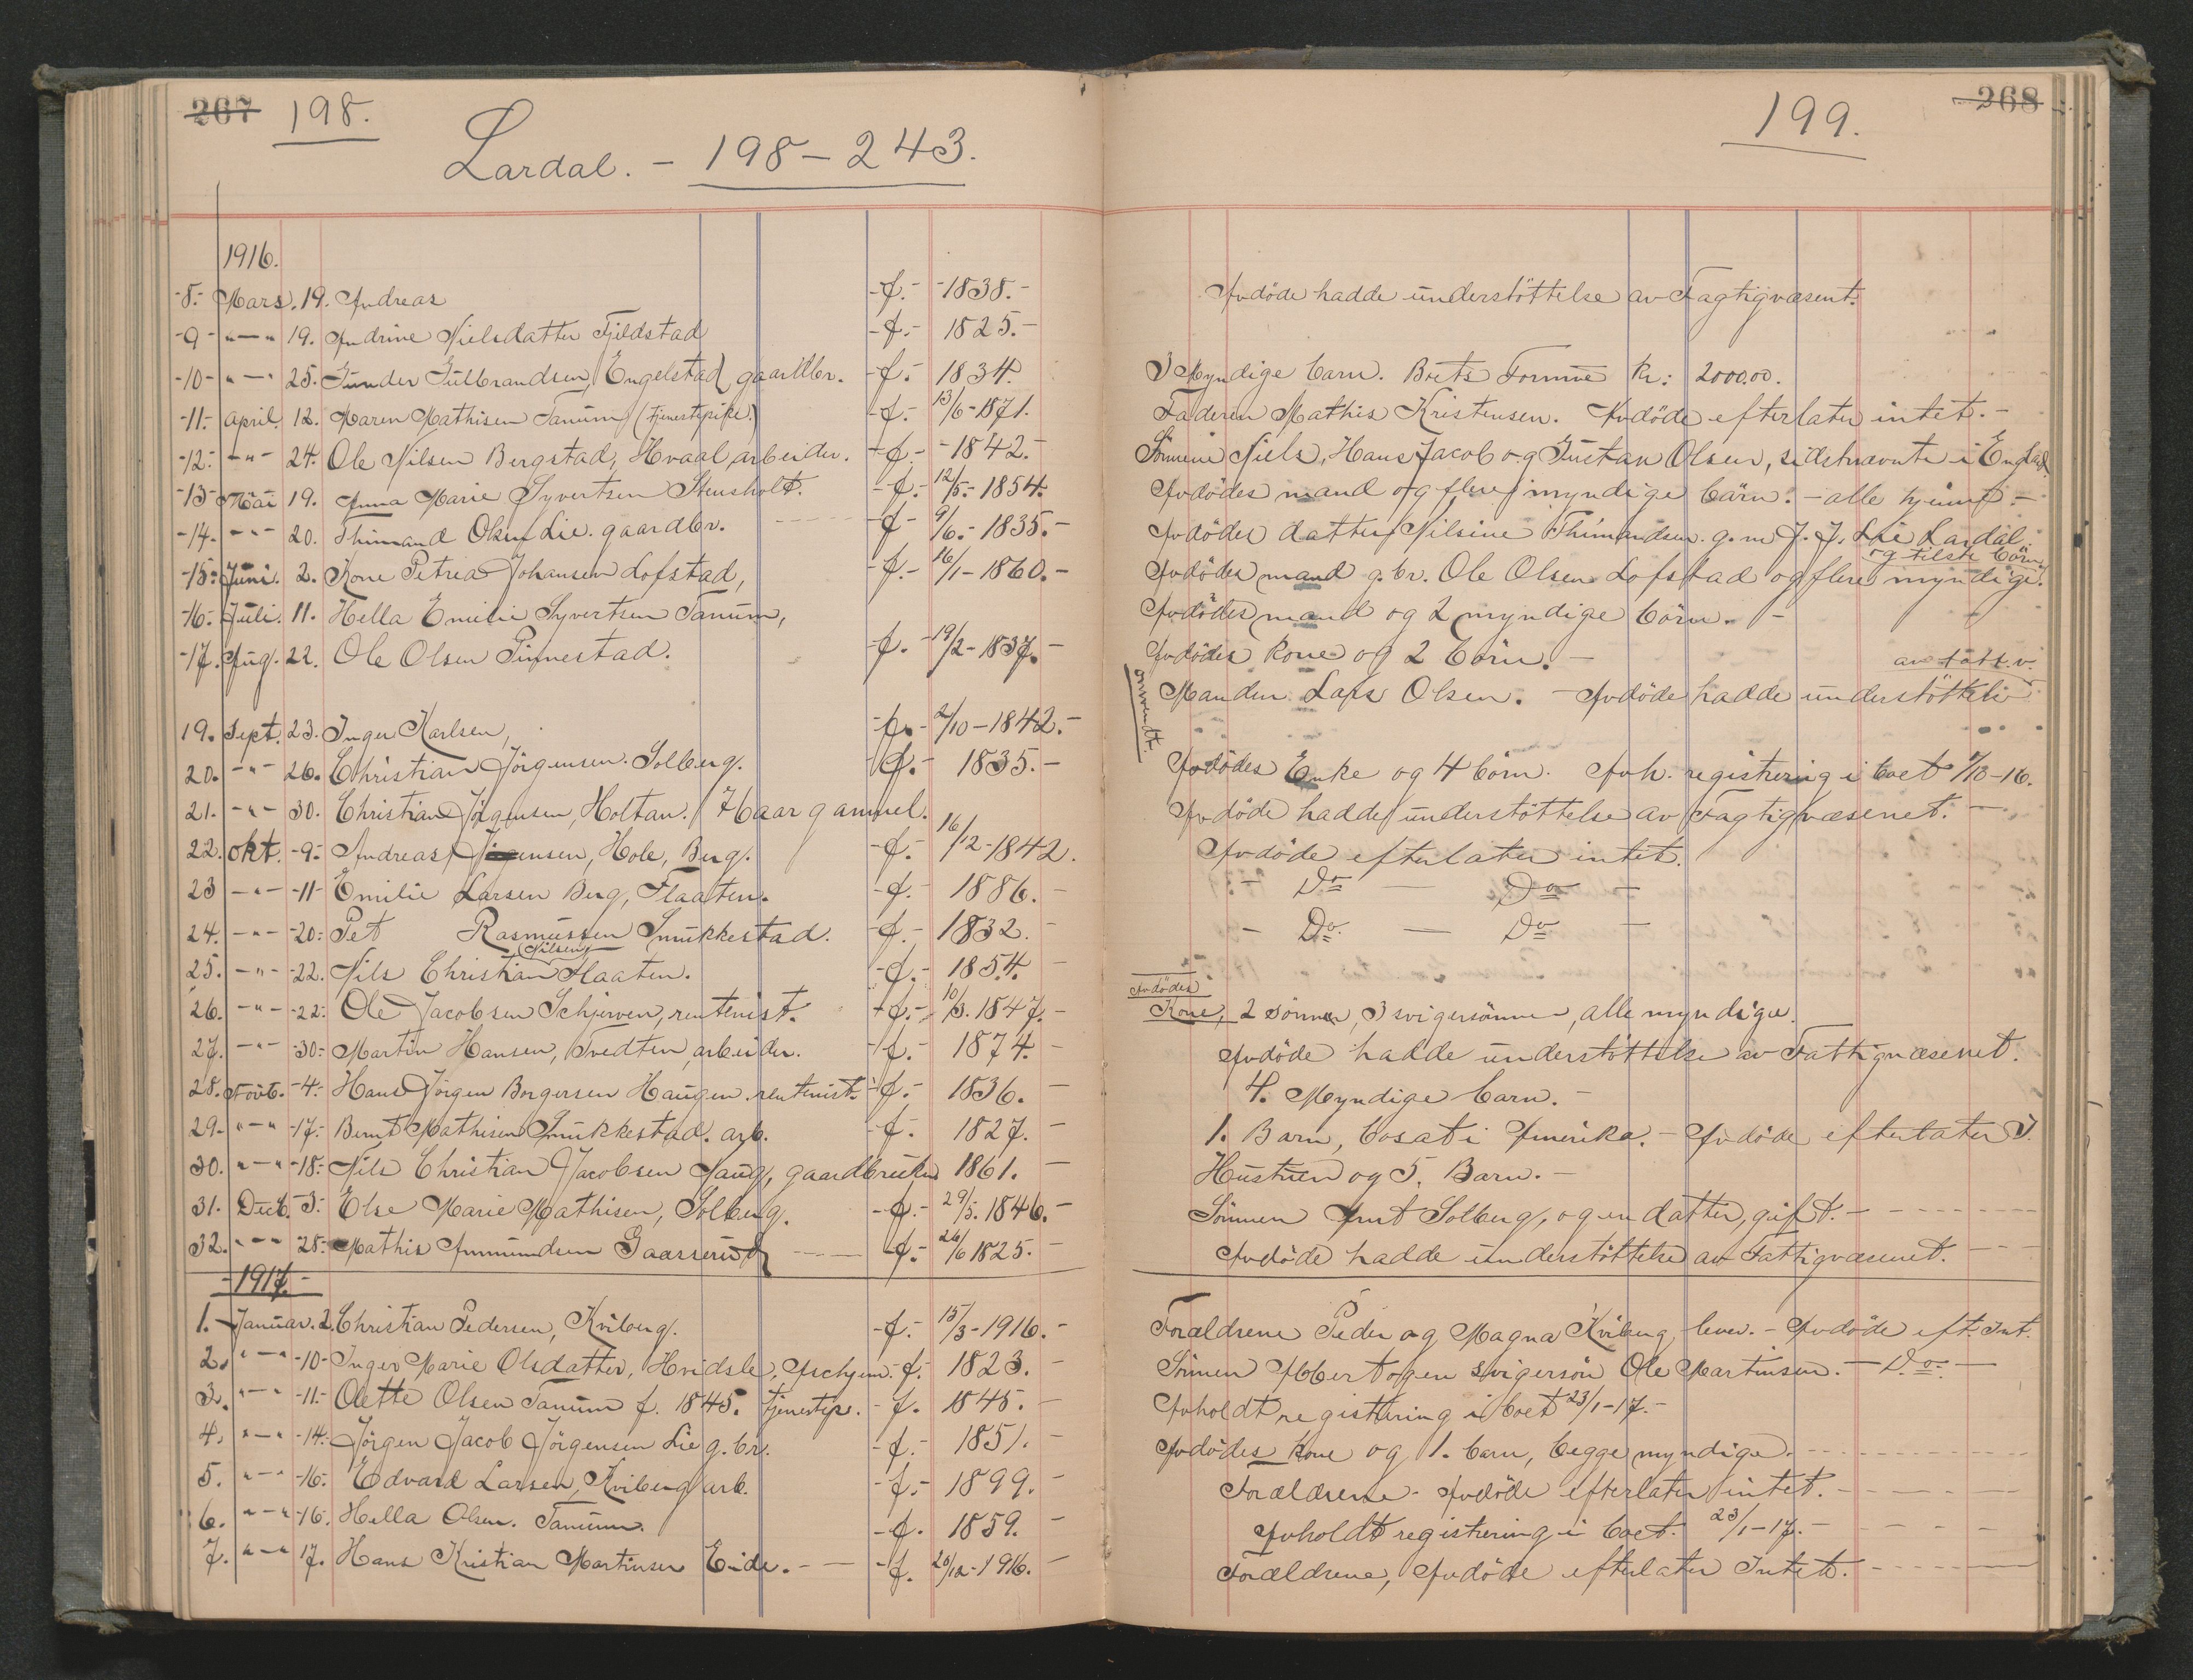 267 198.
Lardal. - 198-243.
1916.
-8.- Mars. 19. Andreas -f.- -1838.-
-9- "-" 19. Andrine Nielsdatter Fjeldstad -f.- 1825.-
-10- "-" 25. Gunder Gulbrandsen Engelstad gaardbr. -f.- 1834.
-11- April. 12. Maren Mathisen Tanum (tjenestepike.) -f.- 13/6-1871.
-12.- -"- 24. Ole Nilsen Bergstad, Hvaal, arbeider. -f.- -1842.-
-13- Mai 19. Anna Marie Syvertsen Stensholt. -f.- 12/5.-1854.
-14.- -"- 20. Thimand Olsen Lie. gaardbr. -f- 9/6.-1835.-
-15- Juni. 2. Kone Petrea Johansen Lofstad, -f.- 16/1-1860.-
-16.- Juli. 11. Hella Emilie Syvertsen Tanum,
-17. Aug. 22. Ole Olsen Pinnestad. -f.- 19/2-1837.-
19. Sept. 23. Inger Karlsen, -f.- 2/10-1842.-
20. -"- 26. Christian Jörgensen. Solberg. -f.- 1835.-
21. -"- 30. Christian Jörgensen, Holtan. 74 aar gammel.
22. okt. -9- Andreas Jörgensen, Hole, Berg. -f.- 16/12-1842.
23 -"- -11- Emilie Larsen Berg, Flaaten. -f.- 1886.-
24. -"- -20- Pet Rasmussen Smukkestad. -f.- 1832.-
25. -"- -22. Nils Christian Nilsen Flaaten. -f.- 1854.-
26. -"- -22- Ole Jacobsen Schjerven, rentenist. -f.- 10/3.1847.-
27. -"- -30- Martin Hansen, Tvedten, arbeider. -f.- 1874.-
28. Novb. -4- Hans Jörgen Borgersen Haugen. rentenist. -f.- 1836.-
29. "-" -17- Bernt Mathisen Smukkestad. arb. -f.- 1827.-
30. "-" -18- Nils Christian Jacobsen Haug, gaardbruker 1861.-
31. Decb. -3- Else Marie Mathisen, Solberg. -f.- 29/5.1846.-
32. "-" 28- Mathis Ammundsen Gaasserud -f.- 26/6 1825.-
-1917.-
1. Januar. 2. Christian Pedersen, Kviberg. -f.- 15/3-1916.-
2. "-" -10- Inger Marie Olsdatter, Hvidsle, Aschjem. -f.- 1823.-
3. "-" -11- Olette Olsen Tanum f. 1845. tjenestep. -f. 1845.-
4. "-" -14- Jörgen Jacob Jörgensen Lie g.br. -f.- 1851.-
5. "-" -16- Edvard Larsen, Kviberg arb. -f.- 1899.-
6. "-" -16. Hella Olsen. Tanum. -f. 1859.-
7. "-" 17. Hans Kristian Martinsen Eide. -f. 26/12-1916.-
199. 268
Avdöde hadde understöttelse av Fagtigvæsent.
3 Myndige barn. Boets Formue kr: 2000.00.
Faderen Mathis Kristensen. Avdöde efterlater intet.-
Sönnene Niels, Hans Jacob og Gustav Olsen, sidstnævnte i England
Avdödes mand og flere myndige börn. - alle hjemme -
Avdödes datter Nilsine Thimandsen g.m. J. J. Lie Lardal.
og tilste börn
Avdödes mand g.br. Ole Olsen Lofstad og flere myndige.
Avdödes mand og 2 myndige börn. -
Avdödes kone og 2 börn. -
av fatt.v.
Manden Lars Olsen. - Avdöde hadde understöttelse
omvendt.
Avdödes Enke og 4 börn. Avh. registrering i boet 7/10-16.
Avdöde hadde understöttelse av Fagtigvæsenet. -
Avdöde efterlater intet.
- Do - Do -
- Do. - Do -
Avdödes
Kone, 2 sönner, 3 svigersönner, alle myndige.
Avdöde hadde understöttelse av Fattigvæsenet.
4. Myndige barn. -
1. Barn, bosat i Amerika. - Avdöde efterlater I.
Hustruen og 5. Barn. -
Sönnen Arnt Solberg, og en datter, gift. -
Avdöde hadde understöttelse av Fattigvæsenet.
Forældrene Peder og Magna Kviberg lever. - Avdöde eft. Int.
Sönnen Abbert og en svigersön Ole Martinsen. - Do. -
Avholdt registrering i boet 23/1-17.-
Avdödes kone og 1. barn, begge myndige.
Forældrene. Avdöde efterlater intet. -
Avholdt registrering i boet. 23/1-17. -
Forældrene, Avdöde efterlater Intet. -